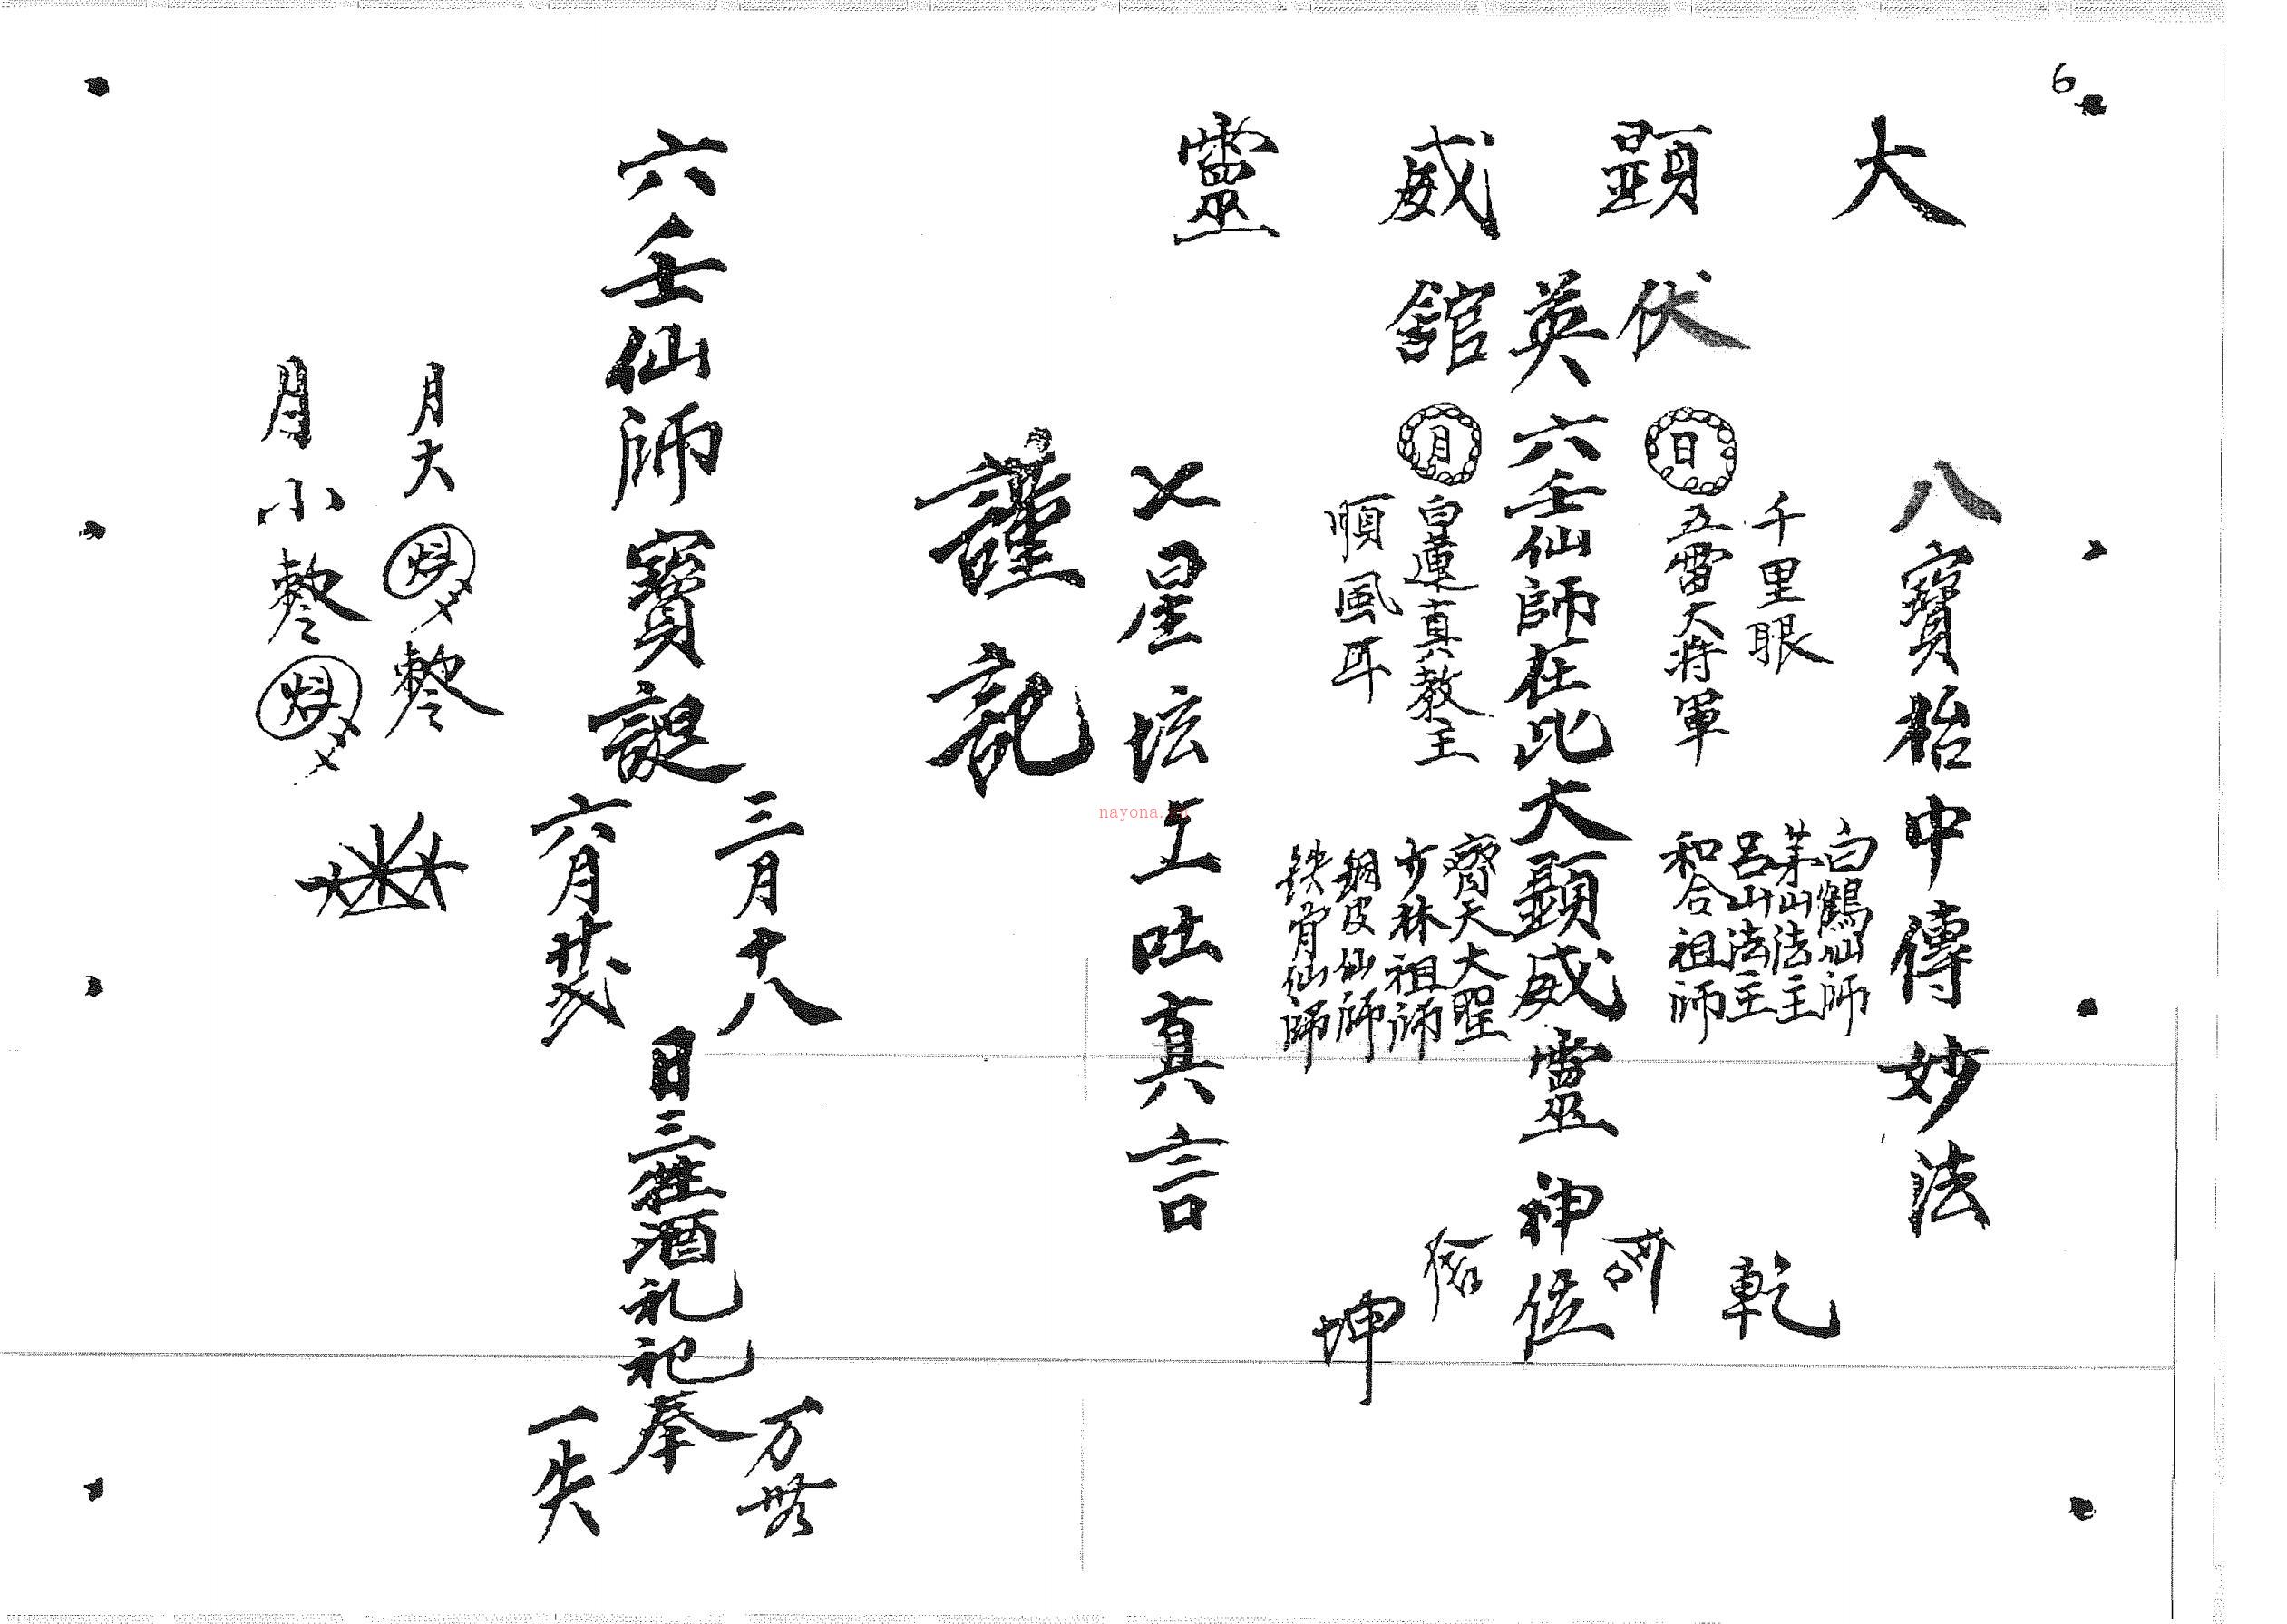 6
大顕威靈
八寳枱中傳妙法
伏英舘
日
月
千里眼
五雷大将軍
六壬仙師在此大顕威靈神位
白蓮真教主
順風耳
白鶴仙師
茅山法主
呂山法主
和合祖師
齊天大聖
少林祖師
銅皮仙師
鉄骨仙師
乾
坤
七星坛上吐真言
謹記
六壬仙師寳誕
三月十八
六月廿
日三牲酒礼祀奉
万
一失
月大
月小
nayona.cn